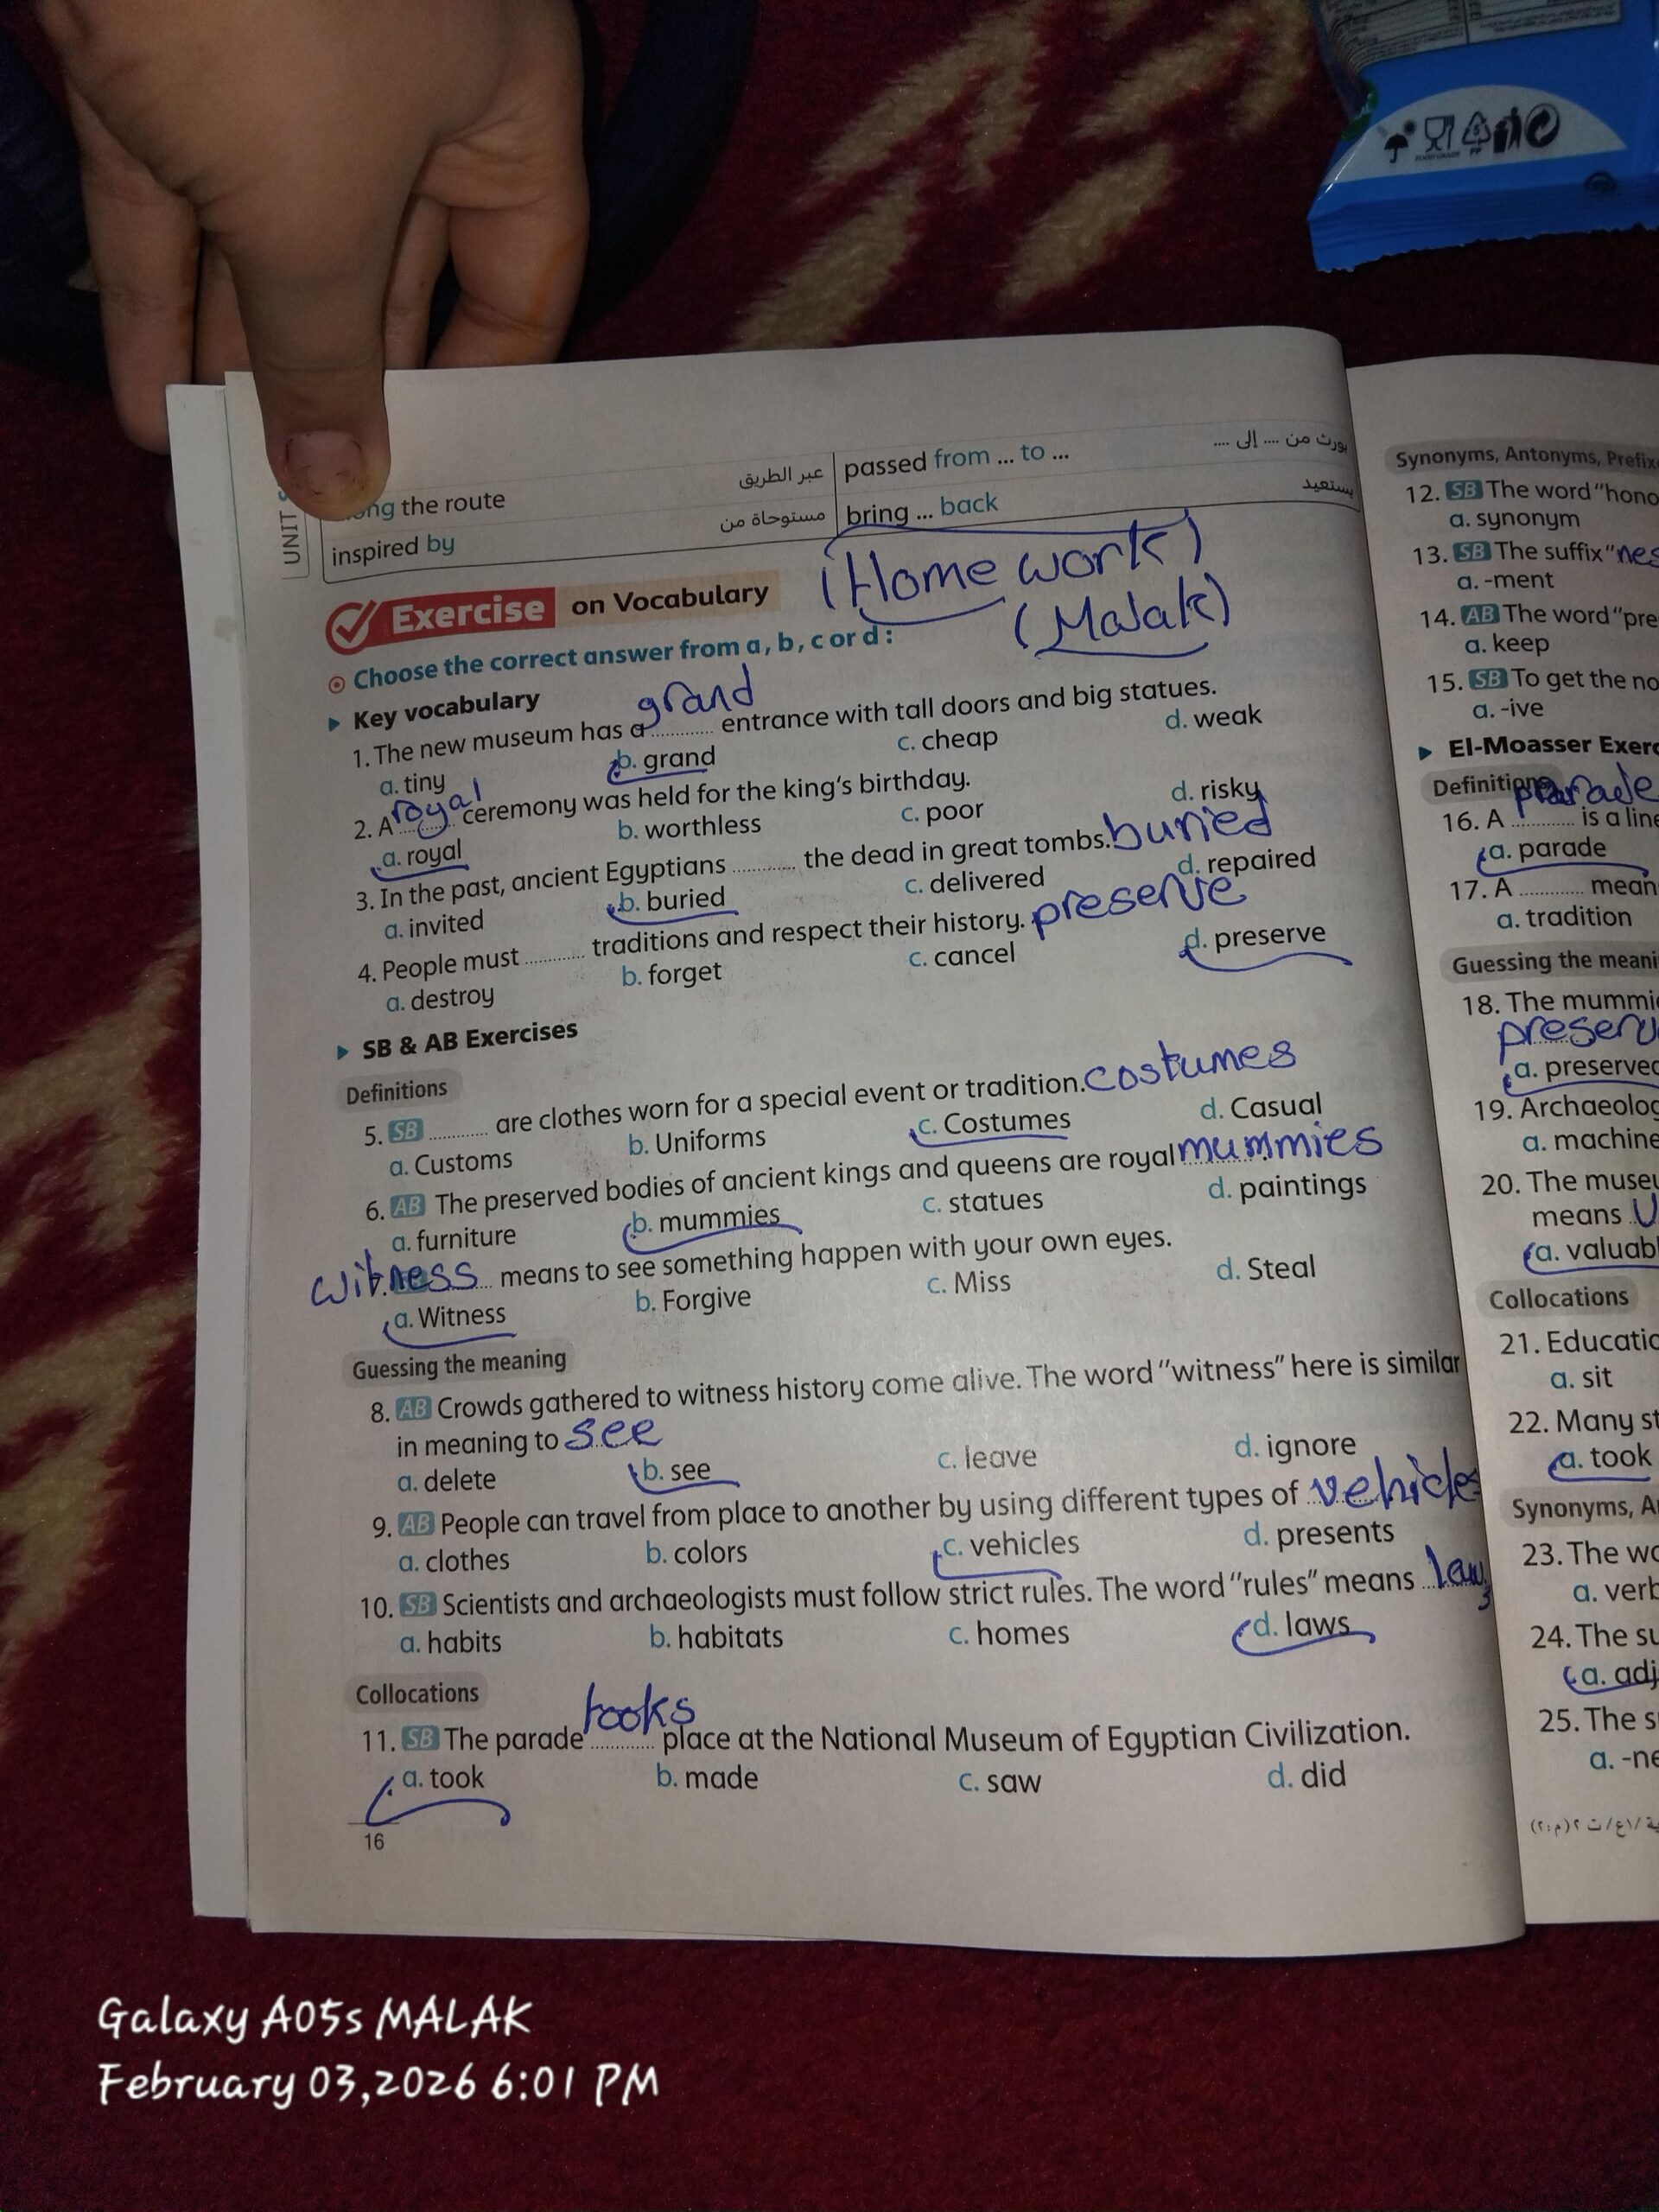 FOOD GRADE
PP
UNIT
the route
عبر الطريق
passed from ... to ...
يورث من .... إلى ....
inspired by
مستوحاة من
bring ... back
يستعيد
(Home work)
(Malak)
Exercise on Vocabulary
Choose the correct answer from a, b, c or d :
Key vocabulary
1. The new museum has a grand entrance with tall doors and big statues.
a. tiny b. grand c. cheap d. weak
2. A royal ceremony was held for the king's birthday.
a. royal b. worthless c. poor d. risky
3. In the past, ancient Egyptians ............ the dead in great tombs. buried
a. invited b. buried c. delivered d. repaired
4. People must ............ traditions and respect their history. preserve
a. destroy b. forget c. cancel d. preserve
SB & AB Exercises
Definitions
5. SB ............ are clothes worn for a special event or tradition. costumes
a. Customs b. Uniforms c. Costumes d. Casual
6. AB The preserved bodies of ancient kings and queens are royal mummies
a. furniture b. mummies c. statues d. paintings
witness means to see something happen with your own eyes.
a. Witness b. Forgive c. Miss d. Steal
Guessing the meaning
8. AB Crowds gathered to witness history come alive. The word "witness" here is similar
in meaning to see
a. delete b. see c. leave d. ignore
9. AB People can travel from place to another by using different types of vehicles
a. clothes b. colors c. vehicles d. presents
10. SB Scientists and archaeologists must follow strict rules. The word "rules" means laws
a. habits b. habitats c. homes d. laws
Collocations
11. SB The parade tooks place at the National Museum of Egyptian Civilization.
a. took b. made c. saw d. did
16
Synonyms, Antonyms, Prefix
12. SB The word "hono
a. synonym
13. SB The suffix "nes
a. -ment
14. AB The word "pre
a. keep
15. SB To get the no
a. -ive
El-Moasser Exerc
Definitions
parade
16. A ............ is a line
a. parade
17. A ............ mean
a. tradition
Guessing the meani
18. The mummi
preserv
a. preserved
19. Archaeolog
a. machine
20. The museu
means
a. valuabl
Collocations
21. Educatio
a. sit
22. Many st
a. took
Synonyms, A
23. The wo
a. verb
24. The su
a. adj
25. The s
a. -ne
Galaxy A05s MALAK
February 03,2026 6:01 PM